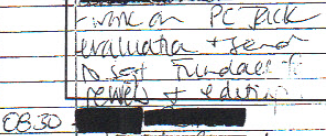 - work on PC pack
evaluation + send
to Sgt
review + editing
0830